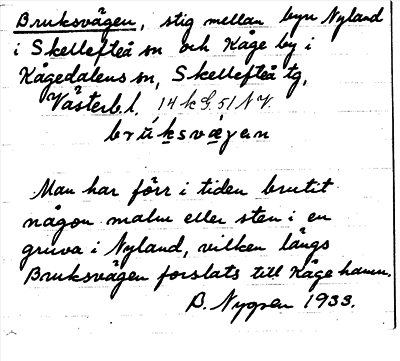 Bruksvägen, stig mellan byn Nyland
i Skellefteå sn och Kåge by i
Kågedalens sn, Skellefteå tg,
Västerb.l. 14 k S. 51 N V.
brúksvægan
Man har förr i tiden brutit
någon malm eller sten i en
gruva i Nyland, vilken längs
Bruksvägen forslats till Kåge hamn.
B. Nygren 1933.